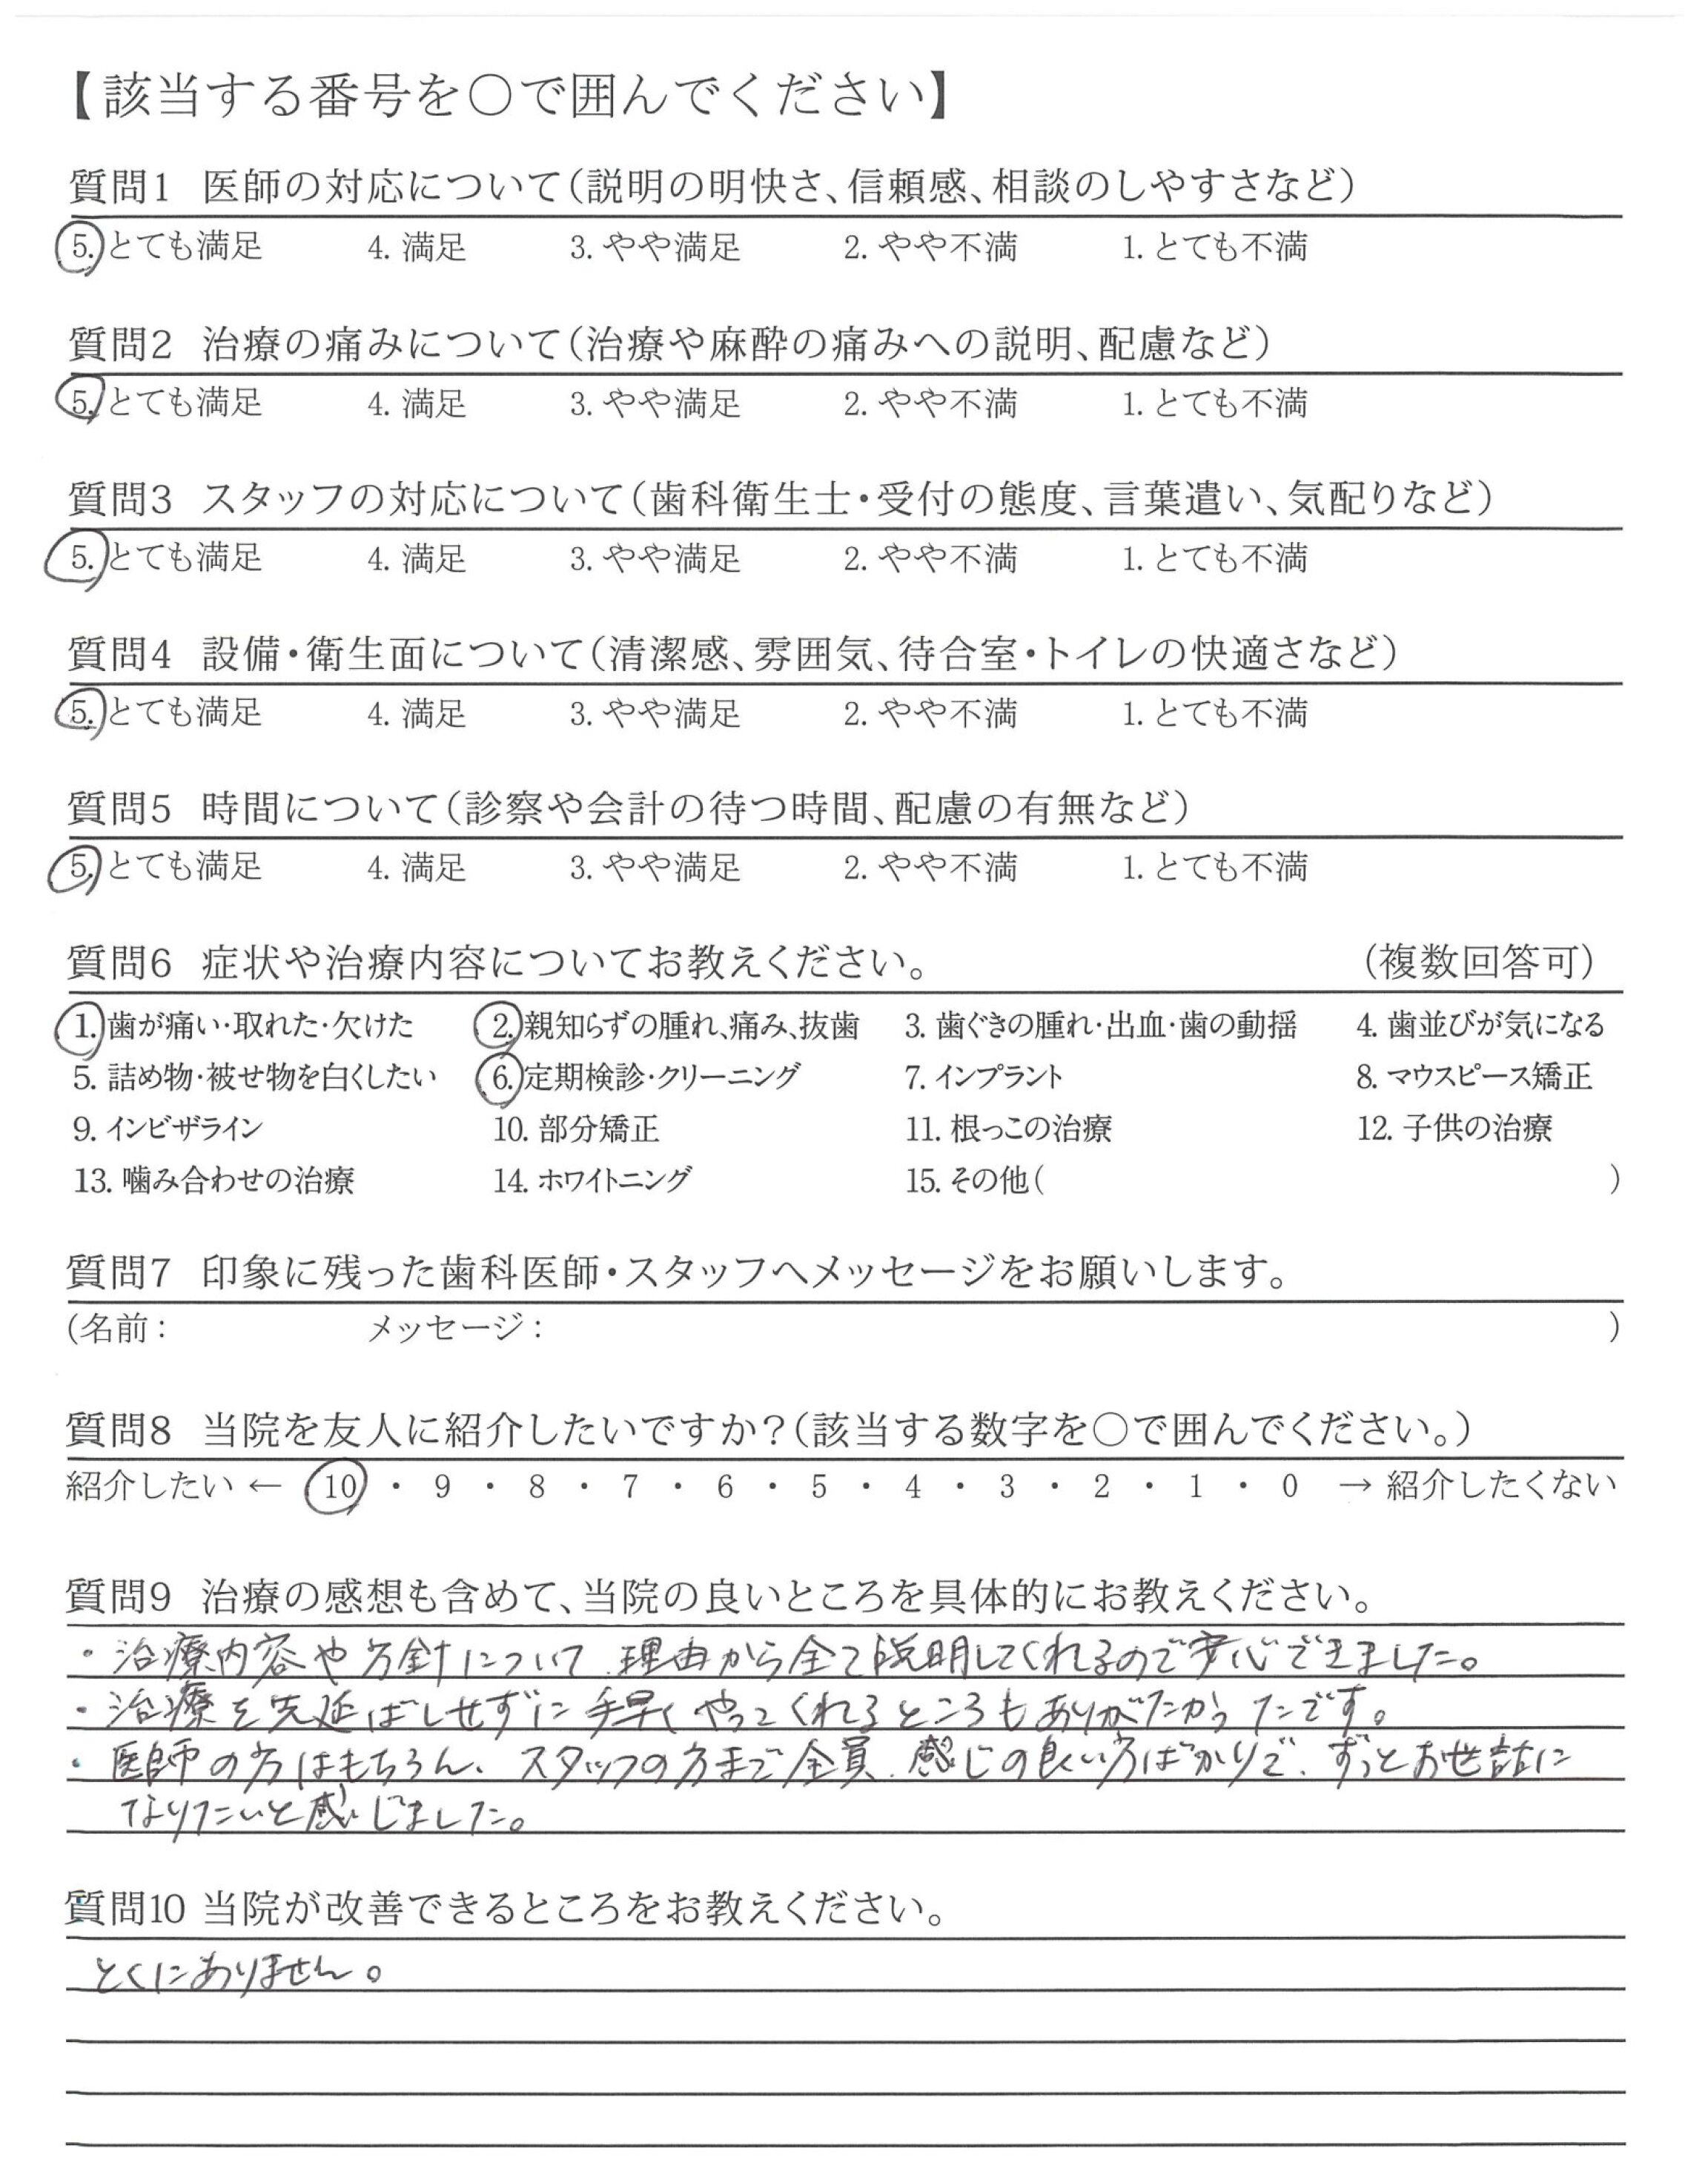 【該当する番号を○で囲んでください】
質問1 医師の対応について（説明の明快さ、信頼感、相談のしやすさなど）
5. とても満足 4. 満足 3. やや満足 2. やや不満 1. とても不満
質問2 治療の痛みについて（治療や麻酔の痛みへの説明、配慮など）
5. とても満足 4. 満足 3. やや満足 2. やや不満 1. とても不満
質問3 スタッフの対応について（歯科衛生士・受付の態度、言葉遣い、気配りなど）
5. とても満足 4. 満足 3. やや満足 2. やや不満 1. とても不満
質問4 設備・衛生面について（清潔感、雰囲気、待合室・トイレの快適さなど）
5. とても満足 4. 満足 3. やや満足 2. やや不満 1. とても不満
質問5 時間について（診察や会計の待つ時間、配慮の有無など）
5. とても満足 4. 満足 3. やや満足 2. やや不満 1. とても不満
質問6 症状や治療内容についてお教えください。 （複数回答可）
1. 歯が痛い・取れた・欠けた 2. 親知らずの腫れ、痛み、抜歯 3. 歯ぐきの腫れ・出血・歯の動揺 4. 歯並びが気になる
5. 詰め物・被せ物を白くしたい 6. 定期検診・クリーニング 7. インプラント 8. マウスピース矯正
9. インビザライン 10. 部分矯正 11. 根っこの治療 12. 子供の治療
13. 噛み合わせの治療 14. ホワイトニング 15. その他（ ）
質問7 印象に残った歯科医師・スタッフへメッセージをお願いします。
（名前： メッセージ： ）
質問8 当院を友人に紹介したいですか？（該当する数字を○で囲んでください。）
紹介したい ← 10 ・ 9 ・ 8 ・ 7 ・ 6 ・ 5 ・ 4 ・ 3 ・ 2 ・ 1 ・ 0 → 紹介したくない
質問9 治療の感想も含めて、当院の良いところを具体的にお教えください。
・治療内容や方針について、理由から全て説明してくれるので安心できました。
・治療を先延ばしせずに手早くやってくれるところもありがたかったです。
・医師の方はもちろん、スタッフの方まで全員、感じの良い方ばかりで、ずっとお世話に
なりたいと感じました。
質問10 当院が改善できるところをお教えください。
とくにありません。